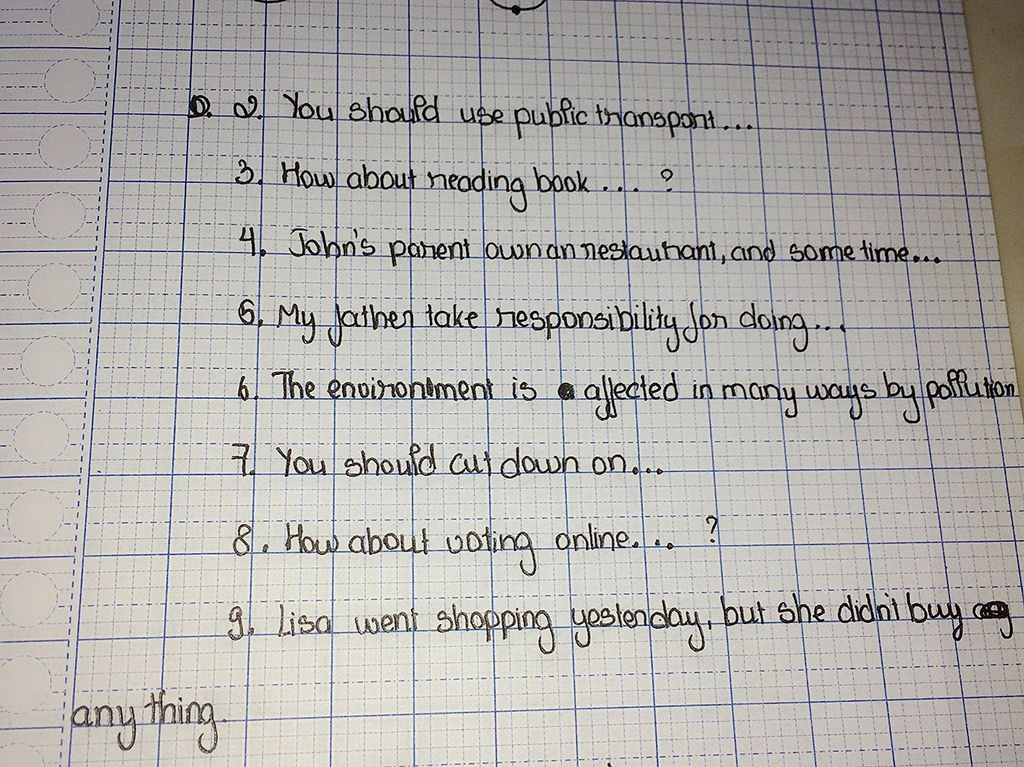 D. 2. You should use public transport...
3. How about reading book.... ?
4. John's parent own an restaurant, and some time...
5. My father take responsibility for doing...
6. The environment is affected in many ways by pollution
7. You should cut down on...
8. How about voting online... ?
9. Lisa went shopping yesterday, but she didn't buy
any thing.